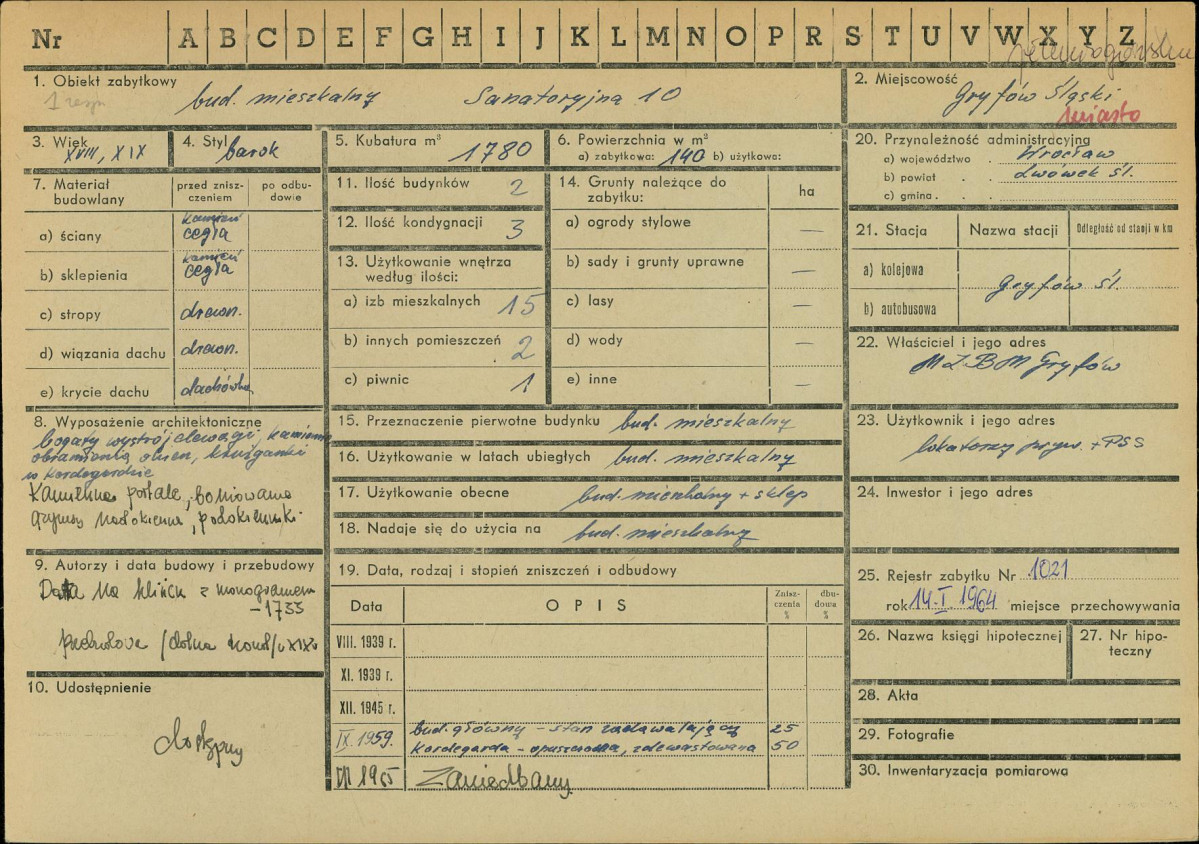 Nr A B C D E F G H I J K L M N O P R S T U V W X Y Z
1. Obiekt zabytkowy
bud. mieszkalny Sanatoryjna 10
2. Miejscowość
Gryfów Śląski
miasto
3. Wiek
XVIII, XIX
4. Styl barok
5. Kubatura m³ 1780
6. Powierzchnia w m²
a) zabytkowa: 140 b) użytkowa:
20. Przynależność administracyjna
a) województwo . Wrocław
b) powiat . . Lwówek śl.
c) gmina . .
7. Materiał budowlany
przed zniszczeniem
po odbudowie
a) ściany kamień cegła
b) sklepienia kamień cegła
c) stropy drewn.
d) wiązania dachu drewn.
e) krycie dachu dachówka
11. Ilość budynków 2
12. Ilość kondygnacji 3
13. Użytkowanie wnętrza
według ilości:
a) izb mieszkalnych 15
b) innych pomieszczeń 2
c) piwnic 1
14. Grunty należące do
zabytku: ha
a) ogrody stylowe —
b) sady i grunty uprawne —
c) lasy —
d) wody —
e) inne —
21. Stacja Nazwa stacji Odległość od stacji w km
a) kolejowa
Gryfów Śl.
b) autobusowa
22. Właściciel i jego adres
MZBM Gryfów
8. Wyposażenie architektoniczne
bogaty wystrój elewacji, kamienne
obramienia okien, krużganki
w kordegardzie
Kamienne portale, boniowane
gzymsy nadokienne, podokienniki
15. Przeznaczenie pierwotne budynku bud. mieszkalny
16. Użytkowanie w latach ubiegłych bud. mieszkalny
17. Użytkowanie obecne bud. mieszkalny + sklep
18. Nadaje się do użycia na bud. mieszkalny
23. Użytkownik i jego adres
lokatorzy pryw. + PSS
24. Inwestor i jego adres
9. Autorzy i data budowy i przebudowy
Data na klińcu z monogramem
- 1733
19. Data, rodzaj i stopień zniszczeń i odbudowy
Data OPIS Zniszczenia % dbudowa %
VIII. 1939 r.
XI. 1939 r.
XII. 1945 r.
IX. 1959. bud. główny - stan zadawalający 25
kordegarda - opuszczona, zdewastowana 50
1965 Zaniedbany
25. Rejestr zabytku Nr 1021
rok 14.I 1964 miejsce przechowywania
26. Nazwa księgi hipotecznej
27. Nr hipoteczny
10. Udostępnienie
dostępny
28. Akta
29. Fotografie
30. Inwentaryzacja pomiarowa